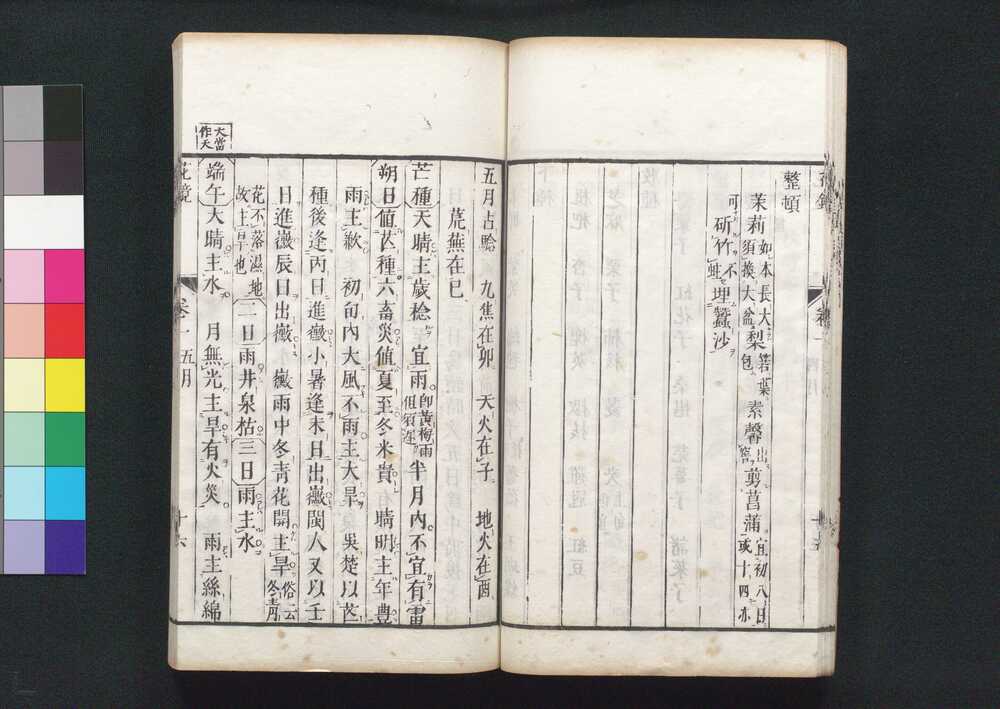 整頓
茉莉 如本長大須換大盆 梨 箬葉包 素馨 出窖 剪菖蒲 宜初八日或十四亦
可 斫竹 不蛀 埋蠶沙
五月占驗 九焦在卯 天火在子 地火在酉
荒蕪在巳
芒種 天晴主歲稔 宜雨 即黃梅雨但須遲 半月內不宜有雷
朔日 值芒種六畜災値夏至冬米貴 晴明主年豊
雨主歉 初旬內大風不雨主大旱 吳楚以芒
種後逢丙日進黴小暑逢未日出黴閩人又以壬
日進黴辰日出黴 黴雨中冬青花開主旱 俗云冬青
花不落濕地故主旱也 二日雨井泉枯 三日雨主水
端午 大晴主水 月無光主旱有火災 雨主絲綿
大當
作天
花鏡 卷一 五月 十六